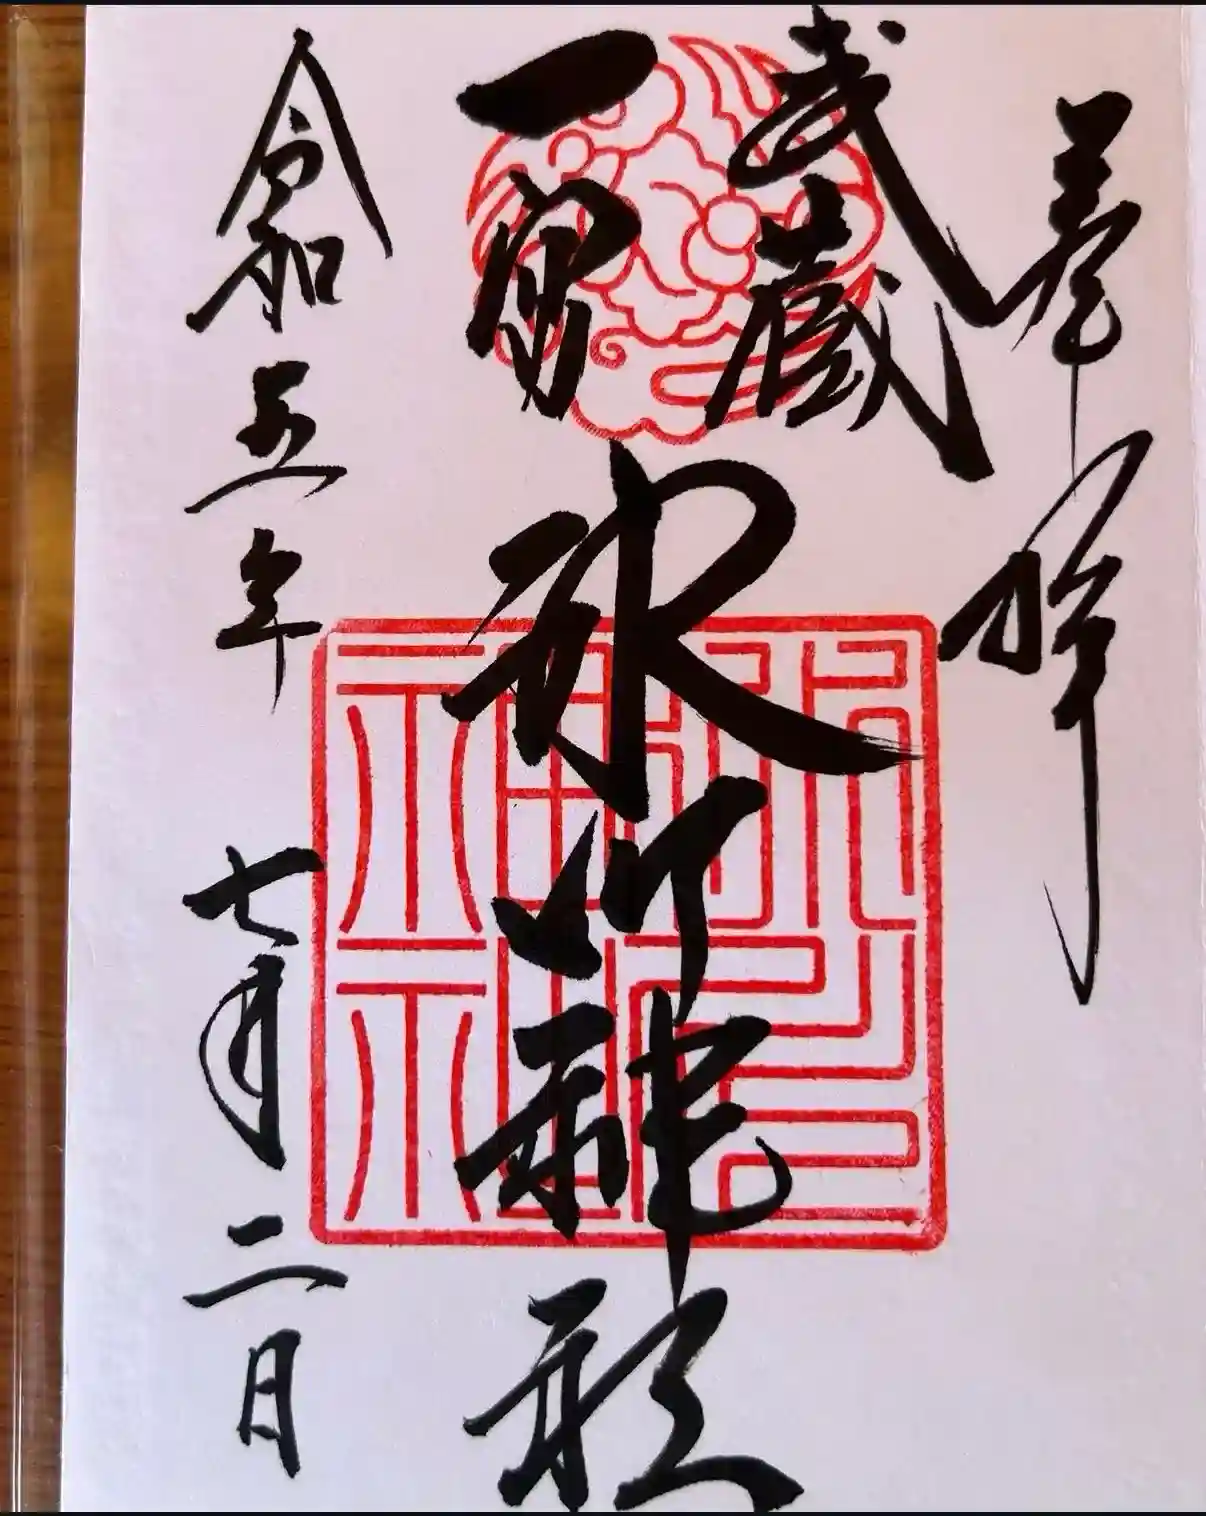 奉拝
武蔵
一宮
氷川神社
令和五年七月二日
氷川神社